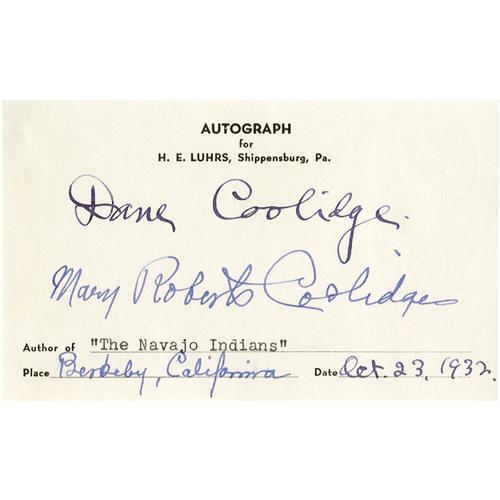 AUTOGRAPH
for
H. E. LUHRS, Shippensburg, Pa.
Dane Coolidge.
Mary Roberts Coolidge
Author of "The Navajo Indians"
Place Berkeley, California Date Oct. 23, 1932.